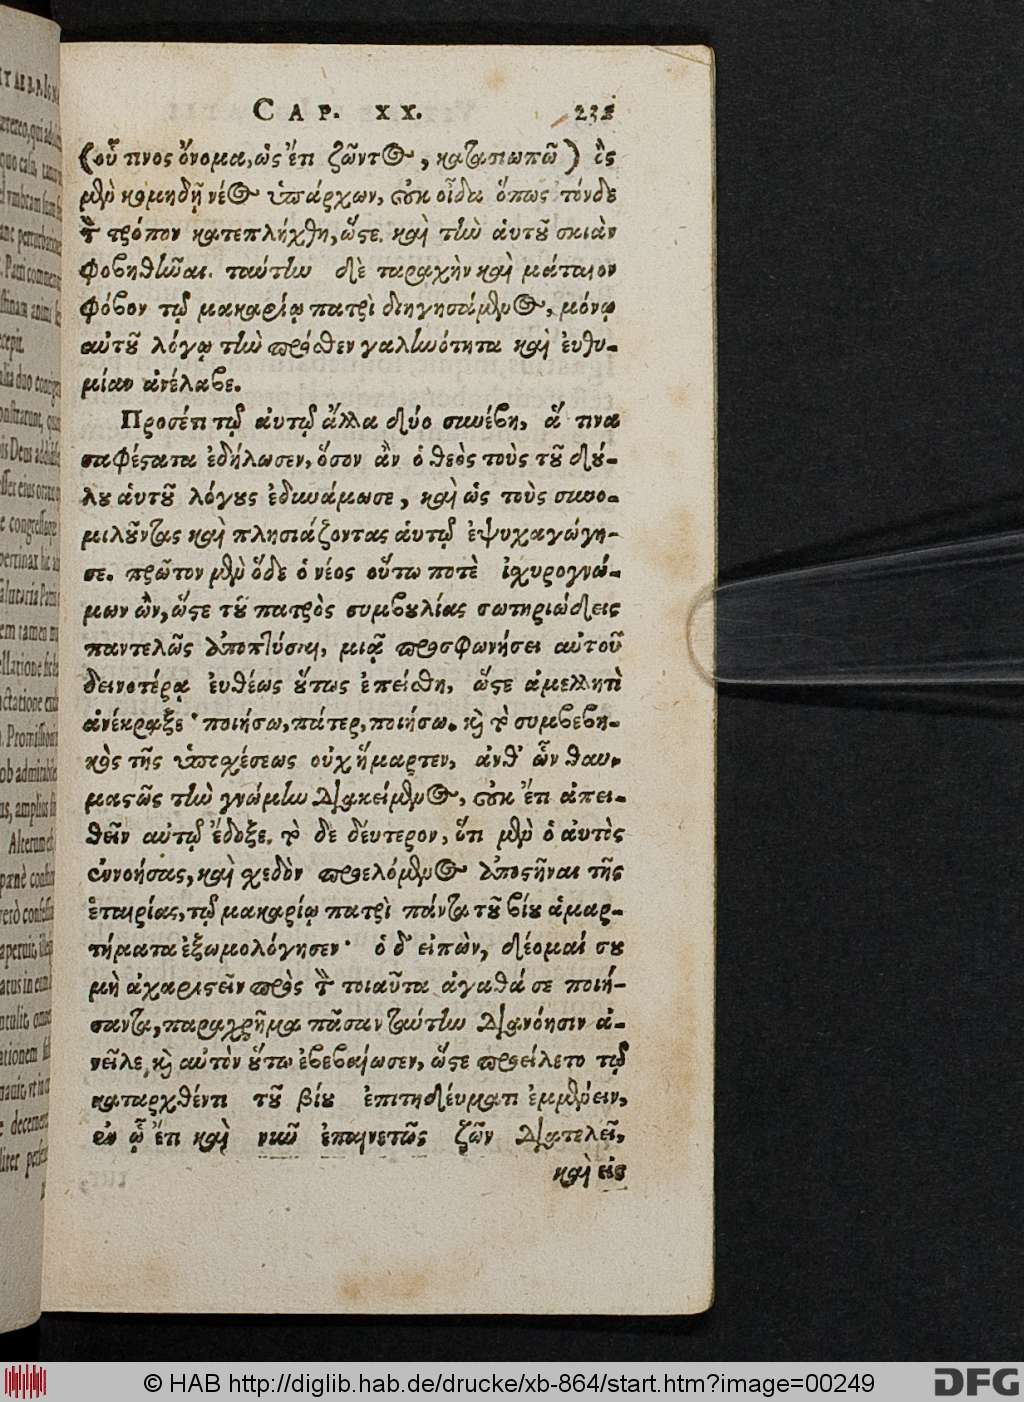 CAP. XX. 231
(οὗ τινος ὄνομα, ὡς ἔτι ζῶντος, κατασιωπῶ) ὃς
μὲν κομηδῇ νέος ὑπάρχων, οὐκ οἶδα ὅπως τόνδε
τὸν τρόπον κατεπλήχθη, ὥστε καὶ τὴν ἁυτοῦ σκιὰν
φοβηθῆναι. ταύτην δὲ ταραχὴν καὶ μάταιον
φόβον τῷ μακαρίῳ πατρὶ διηγησάμενος, μόνῳ
αὐτοῦ λόγῳ τὴν πρόσθεν γαληνότητα καὶ ἐυθυ-
μίαν ἀνέλαβε.
Προσέτι τῷ ἀυτῷ ἄλλα δύο συνέβη, ἅ τινα
σαφέστατα ἐδήλωσεν, ὅσον ἂν ὁ θεὸς τοὺς τοῦ δού-
λου ἁυτοῦ λόγους ἐδυνάμωσε, καὶ ὡς τοὺς συνο-
μιλοῦντας καὶ πλησιάζοντας ἁυτῷ ἐψυχαγώγη-
σε. πρῶτον μὲν ὅδε ὁ νέος οὕτω ποτὲ ἰσχυρογνώ-
μων ὢν, ὥστε τοῦ πατρὸς συμβουλίας σωτηριώδεις
παντελῶς ἀποπτύσαι, μιᾷ προσφωνήσει αὐτοῦ
δεινοτέρᾳ ἐυθέως οὕτως ἐπείσθη, ὥστε ἀμελλητὶ
ἀνέκραξε· ποιήσω, πάτερ, ποιήσω. καὶ τὸ συμβεβη-
κὸς τῆς ὑποσχέσεως οὐχ ἥμαρτεν, ἀνθ' ὧν θαυ-
μαστῶς τὴν γνώμην διακείμενος, οὐκ ἔτι ἀπει-
θεῖν αὐτῷ ἔδοξε. τὸ δε δέυτερον, ὅτι μὲν ὁ ἀυτὸς
ἐννοήσας, καὶ σχεδὸν προελόμενος ἀποστῆναι τῆς
ἑταιρίας, τῷ μακαρίῳ πατρὶ πάντα τοῦ βίου ἁμαρ-
τήματα ἐξωμολόγησεν· ὁ δ' εἰπὼν, δέομαί σου
μὴ ἀχαριστεῖν πρὸς τὸν τοιαῦτα ἀγαθά σε ποιή-
σαντα, παραχρῆμα πᾶσαν ταύτην διανόησιν ἀ-
νεῖλε, καὶ αὐτὸν οὕτω ἐβεβαίωσεν, ὥστε προείλετο τῷ
καταρχθέντι τοῦ βίου ἐπιτηδεύματι ἐμμένειν,
ἐν ᾧ ἔτι καὶ νῦν ἐπαινετῶς ζῶν διατελεῖ,
καὶ εἰς
© HAB http://diglib.hab.de/drucke/xb-864/start.htm?image=00249
DFG